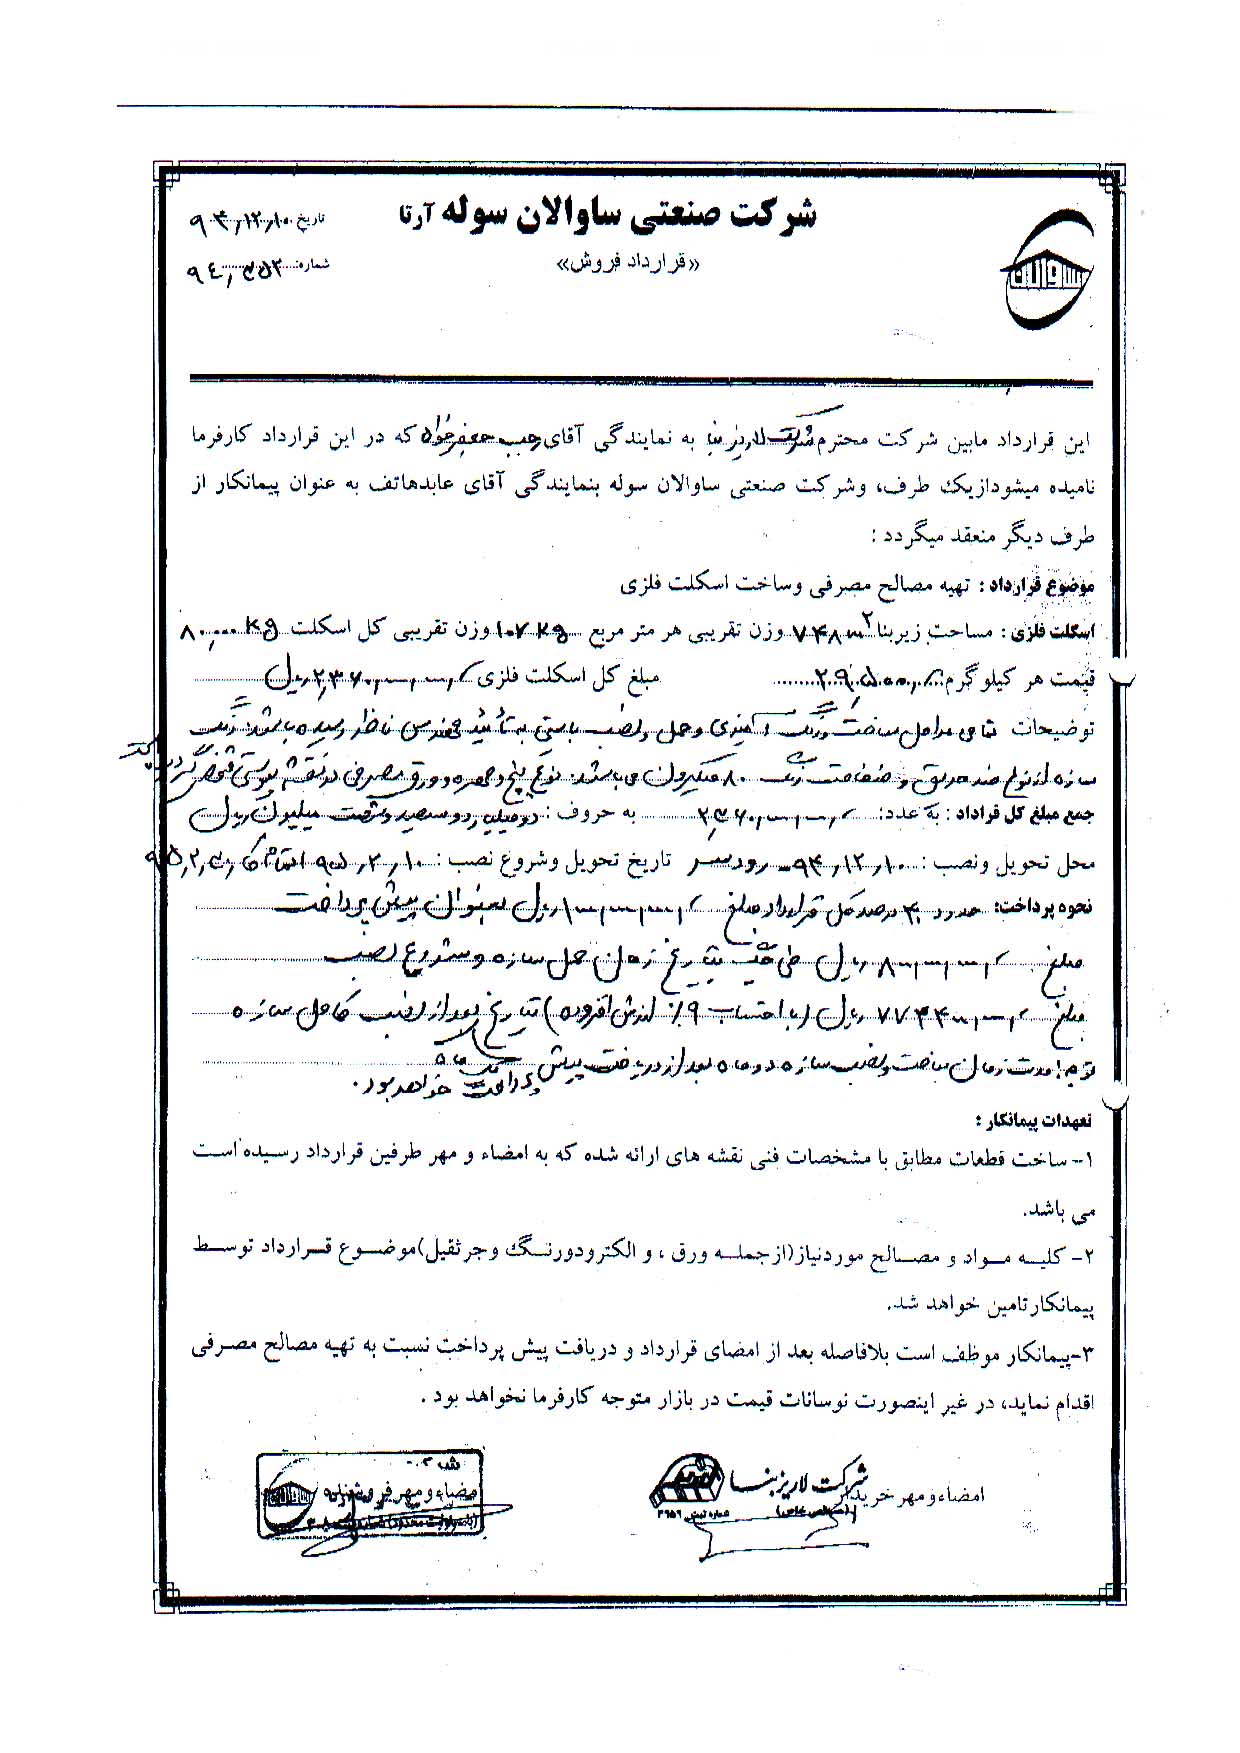 شرکت صنعتی ساوالان سوله آرتا
«قرارداد فروش»
تاریخ: ۹۴/۱۲/۱۰
شماره: ۹۴/۳۵۲
ساوالان
این قرارداد مابین شرکت محترم شرکت لاریز بنا به نمایندگی آقای رجب جعفرجواد که در این قرارداد کارفرما
نامیده میشودازیک طرف، وشرکت صنعتی ساوالان سوله بنمایندگی آقای عابدهاتف به عنوان پیمانکار از
طرف دیگر منعقد میگردد :
موضوع قرارداد : تهیه مصالح مصرفی وساخت اسکلت فلزی
اسکلت فلزی : مساحت زیربنا ۷۴۸ m² وزن تقریبی هر متر مربع ۱۰۷ kg وزن تقریبی کل اسکلت ۸۰/۰۰۰ kg
قیمت هر کیلو گرم ۲۹/۵۰۰ مبلغ کل اسکلت فلزی ۲/۳۶۰/۰۰۰/۰۰۰ ریال
توضیحات تمامی مراحل ساخت و رنگ آمیزی و حمل و نصب بایستی به تأئید مهندس ناظر رسیده باشد. رنگ
سازه از نوع ضد حریق و ضخامت رنگ ۸۰ میکرون می باشد. نوع پیچ و مهره و ورق مصرفی در نقشه بایستی قید گردد
جمع مبلغ کل قراداد : به عدد: ۲/۳۶۰/۰۰۰/۰۰۰ به حروف : دو میلیارد و سیصد و شصت میلیون ریال
محل تحویل ونصب : ۹۴/۱۲/۱۰ - رودسر تاریخ تحویل وشروع نصب : ۹۵/۲/۱۰ اتمام کار ۹۵/۲/۳۰
نحوه پرداخت: حدود ۴۰ درصد کل قرارداد مبلغ ۱/۰۰۰/۰۰۰/۰۰۰ ریال بعنوان پیش پرداخت
مبلغ ۸۰۰/۰۰۰/۰۰۰ ریال طی چک بتاریخ زمان حمل سازه و شروع نصب
مبلغ ۷۷۲۴۰۰/۰۰۰ ریال (با احتساب ۹٪ ارزش افزوده) بتاریخ بعد از نصب کامل سازه
توجه: مدت زمان ساخت و نصب سازه دو ماه بعد از دریافت پیش
پرداخت خواهد بود.
تعهدات پیمانکار :
۱- ساخت قطعات مطابق با مشخصات فنی نقشه های ارائه شده که به امضاء و مهر طرفین قرارداد رسیده است
می باشد.
۲- کلیه مواد و مصالح موردنیاز(ازجمله ورق ، و الکترودورنگ وجرثقیل)موضوع قرارداد توسط
پیمانکارتامین خواهد شد.
۳-پیمانکار موظف است بلافاصله بعد از امضای قرارداد و دریافت پیش پرداخت نسبت به تهیه مصالح مصرفی
اقدام نماید، در غیر اینصورت نوسانات قیمت در بازار متوجه کارفرما نخواهد بود .
امضاءومهر خریدار
شرکت لاریز بنا
(سهامی خاص)
شماره ثبتی ۳۹۵۶
امضاءومهر فروشنده